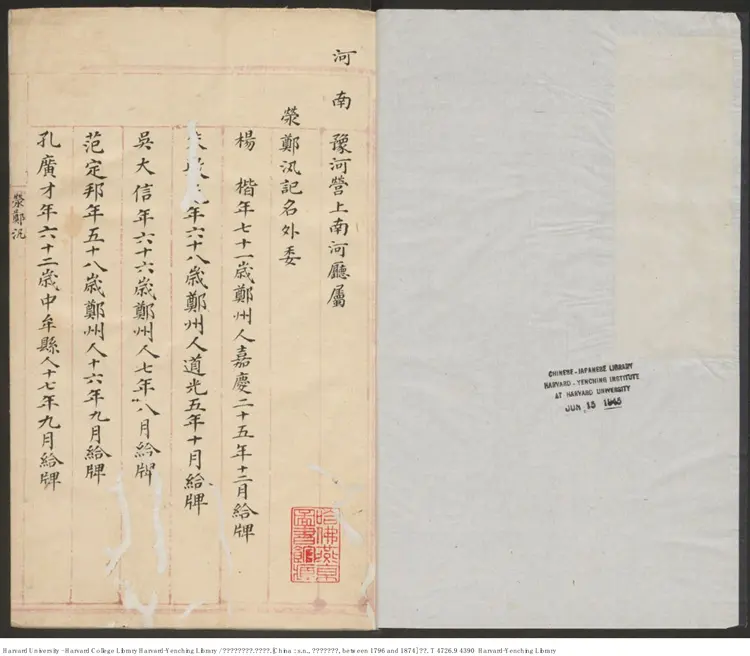 河南　豫河營上南河廳屬
滎鄭汛記名外委
楊　楷年七十一歲鄭州人嘉慶二十五年十二月給牌
年六十八歲鄭州人道光五年十月給牌
吳大信年六十六歲鄭州人七年八月給牌
范定邦年五十八歲鄭州人十六年九月給牌
孔廣才年六十二歲中牟縣人十七年九月給牌
滎鄭汛
哈佛燕京
圖書館
CHINESE-JAPANESE LIBRARY
HARVARD-YENCHING INSTITUTE
AT HARVARD UNIVERSITY
JUN 15 1945
Harvard University - Harvard College Library Harvard-Yenching Library / ????????.????. [China : s.n., ???????, between 1796 and 1874] ??. T 4726.9 4390 Harvard-Yenching Library